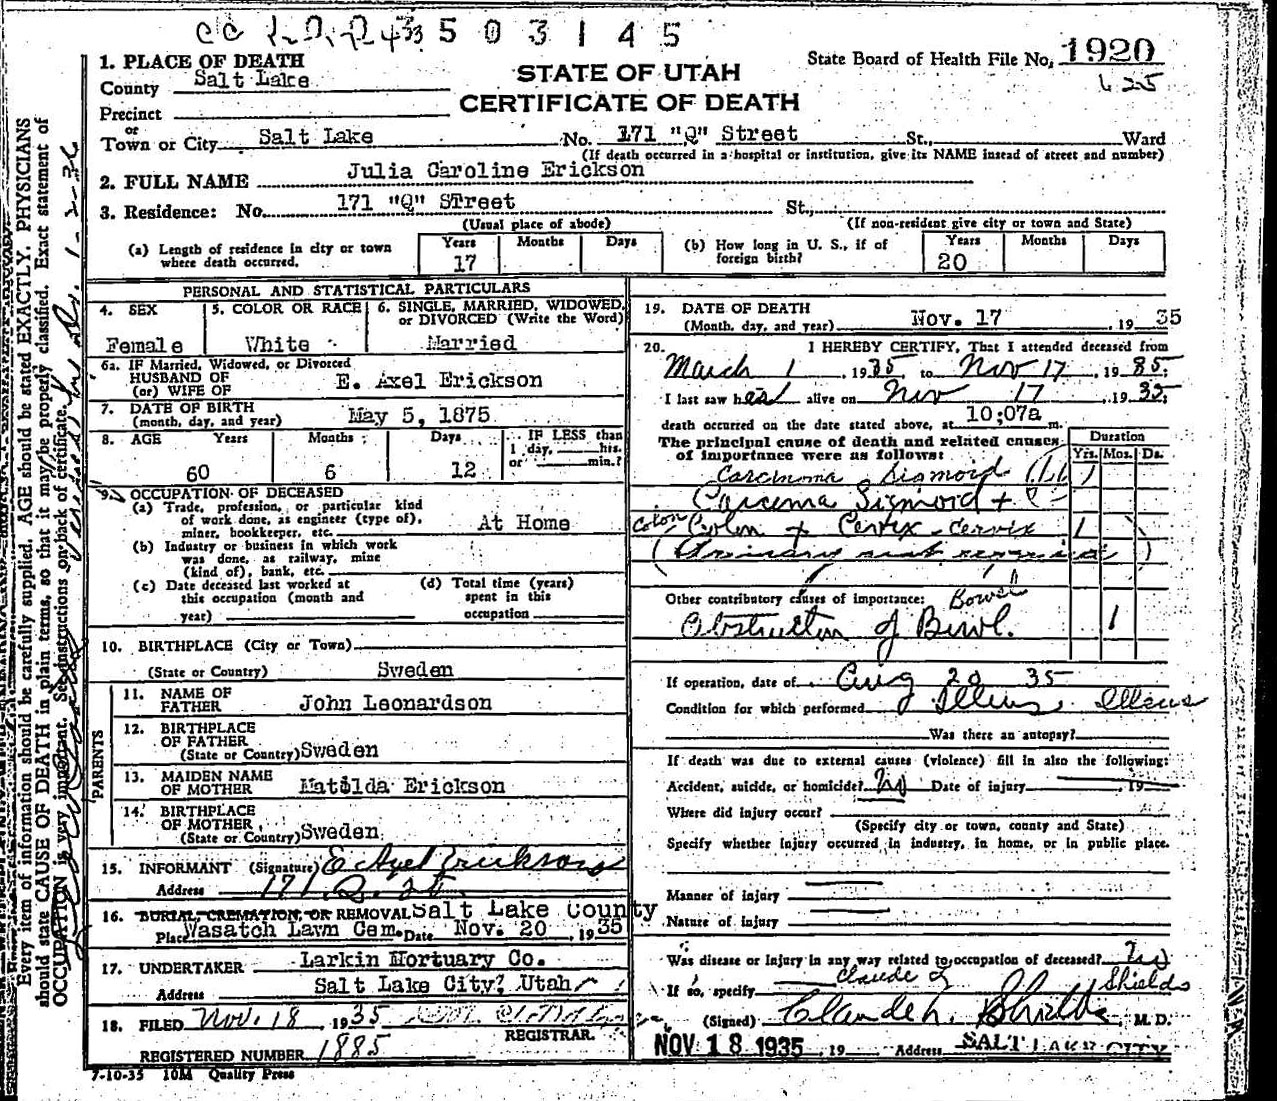 5 0 3 1 4 5
1. PLACE OF DEATH
County Salt Lake
Precinct
or
Town or City Salt Lake No. 171 "Q" Street St., Ward
STATE OF UTAH
CERTIFICATE OF DEATH
State Board of Health File No. 1920
625
(If death occurred in a hospital or institution, give its NAME instead of street and number)
2. FULL NAME Julia Caroline Erickson
3. Residence: No. 171 "Q" STreet St.,
(Usual place of abode) (If non-resident give city or town and State)
(a) Length of residence in city or town where death occurred. Years 17 Months Days
(b) How long in U. S., if of foreign birth? Years 20 Months Days
PERSONAL AND STATISTICAL PARTICULARS
4. SEX Female
5. COLOR OR RACE White
6. SINGLE, MARRIED, WIDOWED, or DIVORCED (Write the Word) Married
6a. IF Married, Widowed, or Divorced
HUSBAND OF
(or) WIFE OF E. Axel Erickson
7. DATE OF BIRTH
(month, day, and year) May 5, 1875
8. AGE Years 60 Months 6 Days 12 IF LESS than 1 day, hrs. or min.?
9. OCCUPATION OF DECEASED
(a) Trade, profession, or particular kind
of work done, as engineer (type of),
miner, bookkeeper, etc. At Home
(b) Industry or business in which work
was done, as railway, mine
(kind of), bank, etc.
(c) Date deceased last worked at
this occupation (month and
year)
(d) Total time (years)
spent in this
occupation
10. BIRTHPLACE (City or Town)
(State or Country) Sweden
PARENTS
11. NAME OF
FATHER John Leonardson
12. BIRTHPLACE
OF FATHER
(State or Country) Sweden
13. MAIDEN NAME
OF MOTHER Matilda Erickson
14. BIRTHPLACE
OF MOTHER
(State or Country) Sweden
15. INFORMANT (Signature) E Axel Erickson
Address 171 Q. St.
16. BURIAL, CREMATION, OR REMOVAL Salt Lake County
Place Wasatch Lawn Cem. Date Nov. 20, 1935
17. UNDERTAKER Larkin Mortuary Co.
Address Salt Lake City, Utah
18. FILED Nov. 18, 1935
REGISTRAR.
REGISTERED NUMBER 1885
7-10-35 10M Quality Press
19. DATE OF DEATH
(Month, day, and year) Nov. 17, 1935
20. I HEREBY CERTIFY, That I attended deceased from
March 1, 1935, to Nov 17, 1935;
I last saw her alive on Nov 17, 1935;
death occurred on the date stated above, at 10:07a m.
The principal cause of death and related causes
of importance were as follows:
Duration
Yrs. Mos. Ds.
Carcinoma Sigmoid
Carcinoma Sigmoid +
Colon Colon + Cervix - Cervix 1
Other contributory causes of importance: Bowel
Obstruction of Bowl. 1
If operation, date of Aug 20 35
Condition for which performed Illeus Illeus
Was there an autopsy?
If death was due to external causes (violence) fill in also the following:
Accident, suicide, or homicide? No Date of injury 19
Where did injury occur?
(Specify city or town, county and State)
Specify whether injury occurred in industry, in home, or in public place.
Manner of injury
Nature of injury
Was disease or injury in any way related to occupation of deceased? No
If so, specify Claude L Shields
(Signed) Claude L. Shields, M. D.
NOV 18 1935, 19 Address SALT LAKE CITY
Every item of information should be carefully supplied. AGE should be stated EXACTLY. PHYSICIANS
should state CAUSE OF DEATH in plain terms, so that it may be properly classified. Exact statement of
OCCUPATION is very important. See instructions on back of certificate.